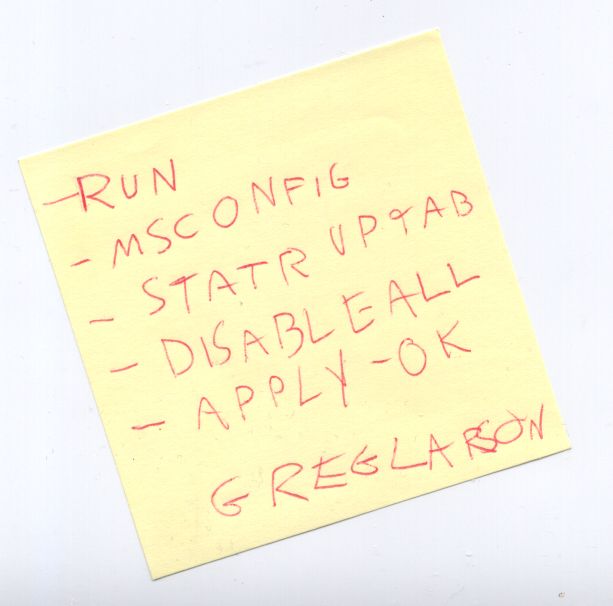 -RUN
- MSCONFIG
- STATR UPTAB
- DISABLEALL
- APPLY-OK
GREGLARSON